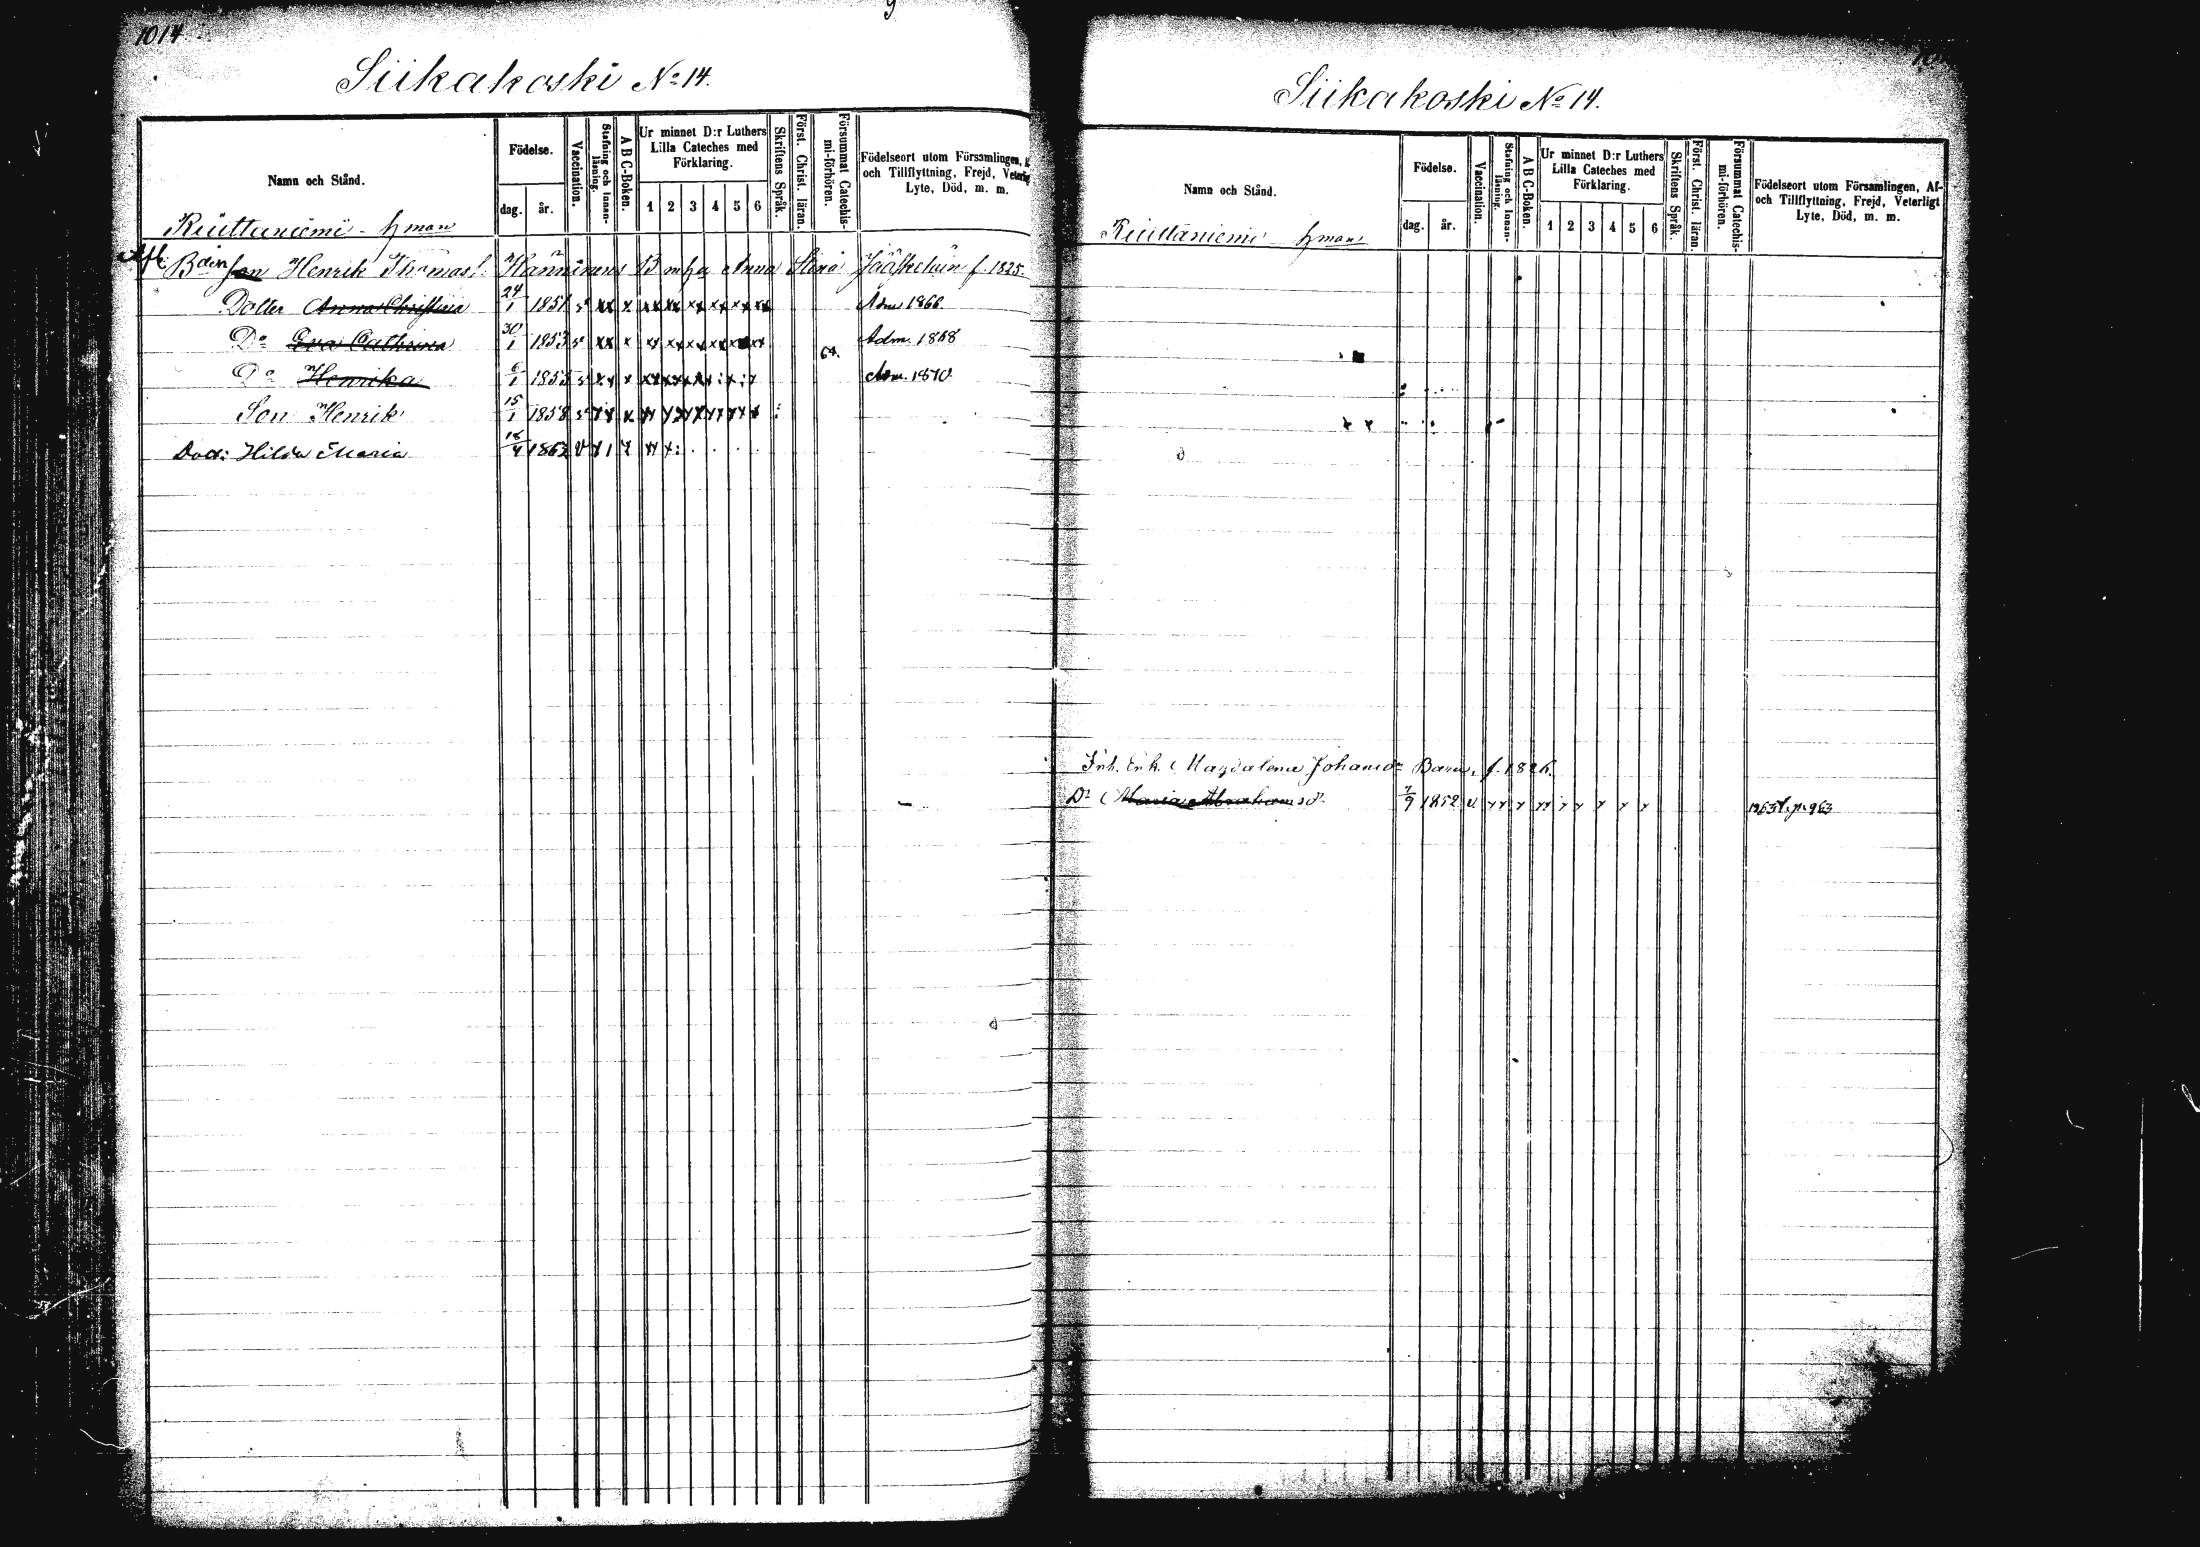 1014
Siikakoski No 14.
Namn och Stånd.
Födelse.
dag.
år.
Vaccination.
Stafning och Innan-
läsning.
A B C-Boken.
Ur minnet D:r Luthers
Lilla Cateches med
Förklaring.
1 2 3 4 5 6
Skriftens Språk.
Först. Christ. läran.
Försummat Catechis-
mi-förhören.
Födelseort utom Församlingen,
och Tillflyttning, Frejd, Veterligt
Lyte, Död, m. m.
Riuttaniemi
Afl. Henrik Thomas Hänninens Anna Stina Jääskeläin f. 1825.
Dotter Anna Christina 24/1 1851 Adm 1866.
Do Eva Cathrina 30/1 1853 Adm. 1868
64.
Do Henrika 6/1 1855 Adm. 1870
Son Henrik 15/1 1858
Dott: Hilda Maria 18/4 1862
Siikakoski No 14.
Namn och Stånd.
Födelse.
dag.
år.
Vaccination.
Stafning och Innan-
läsning.
A B C-Boken.
Ur minnet D:r Luthers
Lilla Cateches med
Förklaring.
1 2 3 4 5 6
Skriftens Språk.
Först. Christ. läran.
Försummat Catechis-
mi-förhören.
Födelseort utom Församlingen, Af-
och Tillflyttning, Frejd, Veterligt
Lyte, Död, m. m.
Riuttaniemi
Inh. Enk. Magdalena Johansdr Barn, f. 1826.
Dr Maria Abrahamsdr 7/9 1852 p. 963